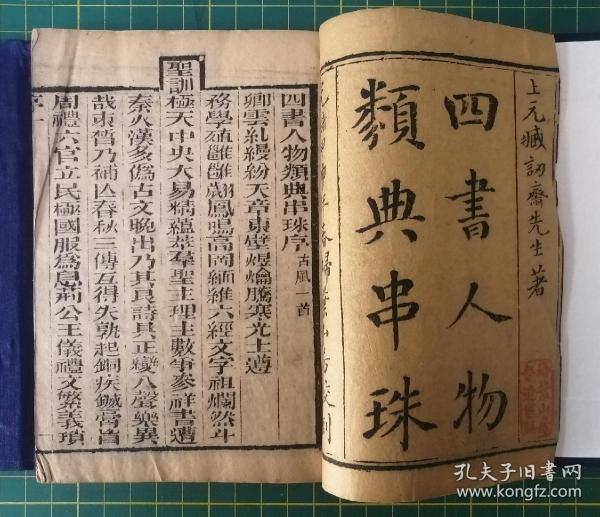 上元臧訒齋先生著
四書人物
類典串珠
四書人物類典串珠序 古風一首
卿雲糺縵紛天章東壁煜爚騰寒光士遵
務學殖雝雝翽翽鳳鳴高岡緬維六經文字祖爛然斗
聖訓極天中央大易精蘊萃羣聖主理主數爭參祥書遭
秦火漢多僞古文晚出乃其良詩具正變八聲樂異
哉束皙乃補亡春秋三傳互得失孰起銅疾鍼膏肓
周禮六官立民極國服爲息荊公王儀禮文繁義瑣
序一
孔夫子旧書网
www.kongfz.com